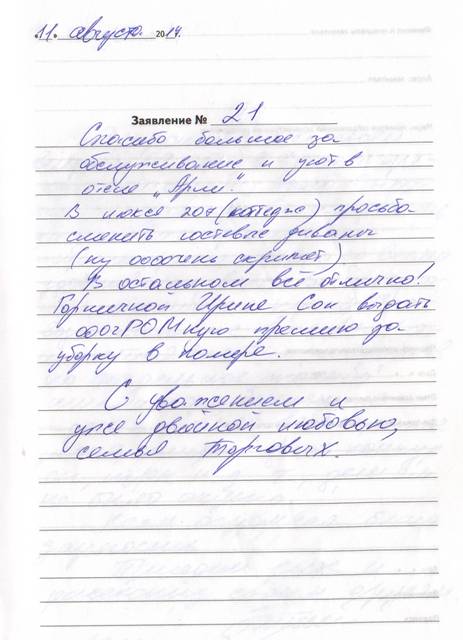 «11» августа 2014.
Заявление № 21
Спасибо большое за
обслуживание и уют в
отеле „Арли".
В люксе 207 (коттедж) просьба
сменить гостевые диваны
(ну ооооочень скрипят)
В остальном всё отлично!
Горничной Ирине Сон выдать
ооогРОМную премию за
уборку в номере.
С уважением и
уже двойной любовью,
семья Торговых.